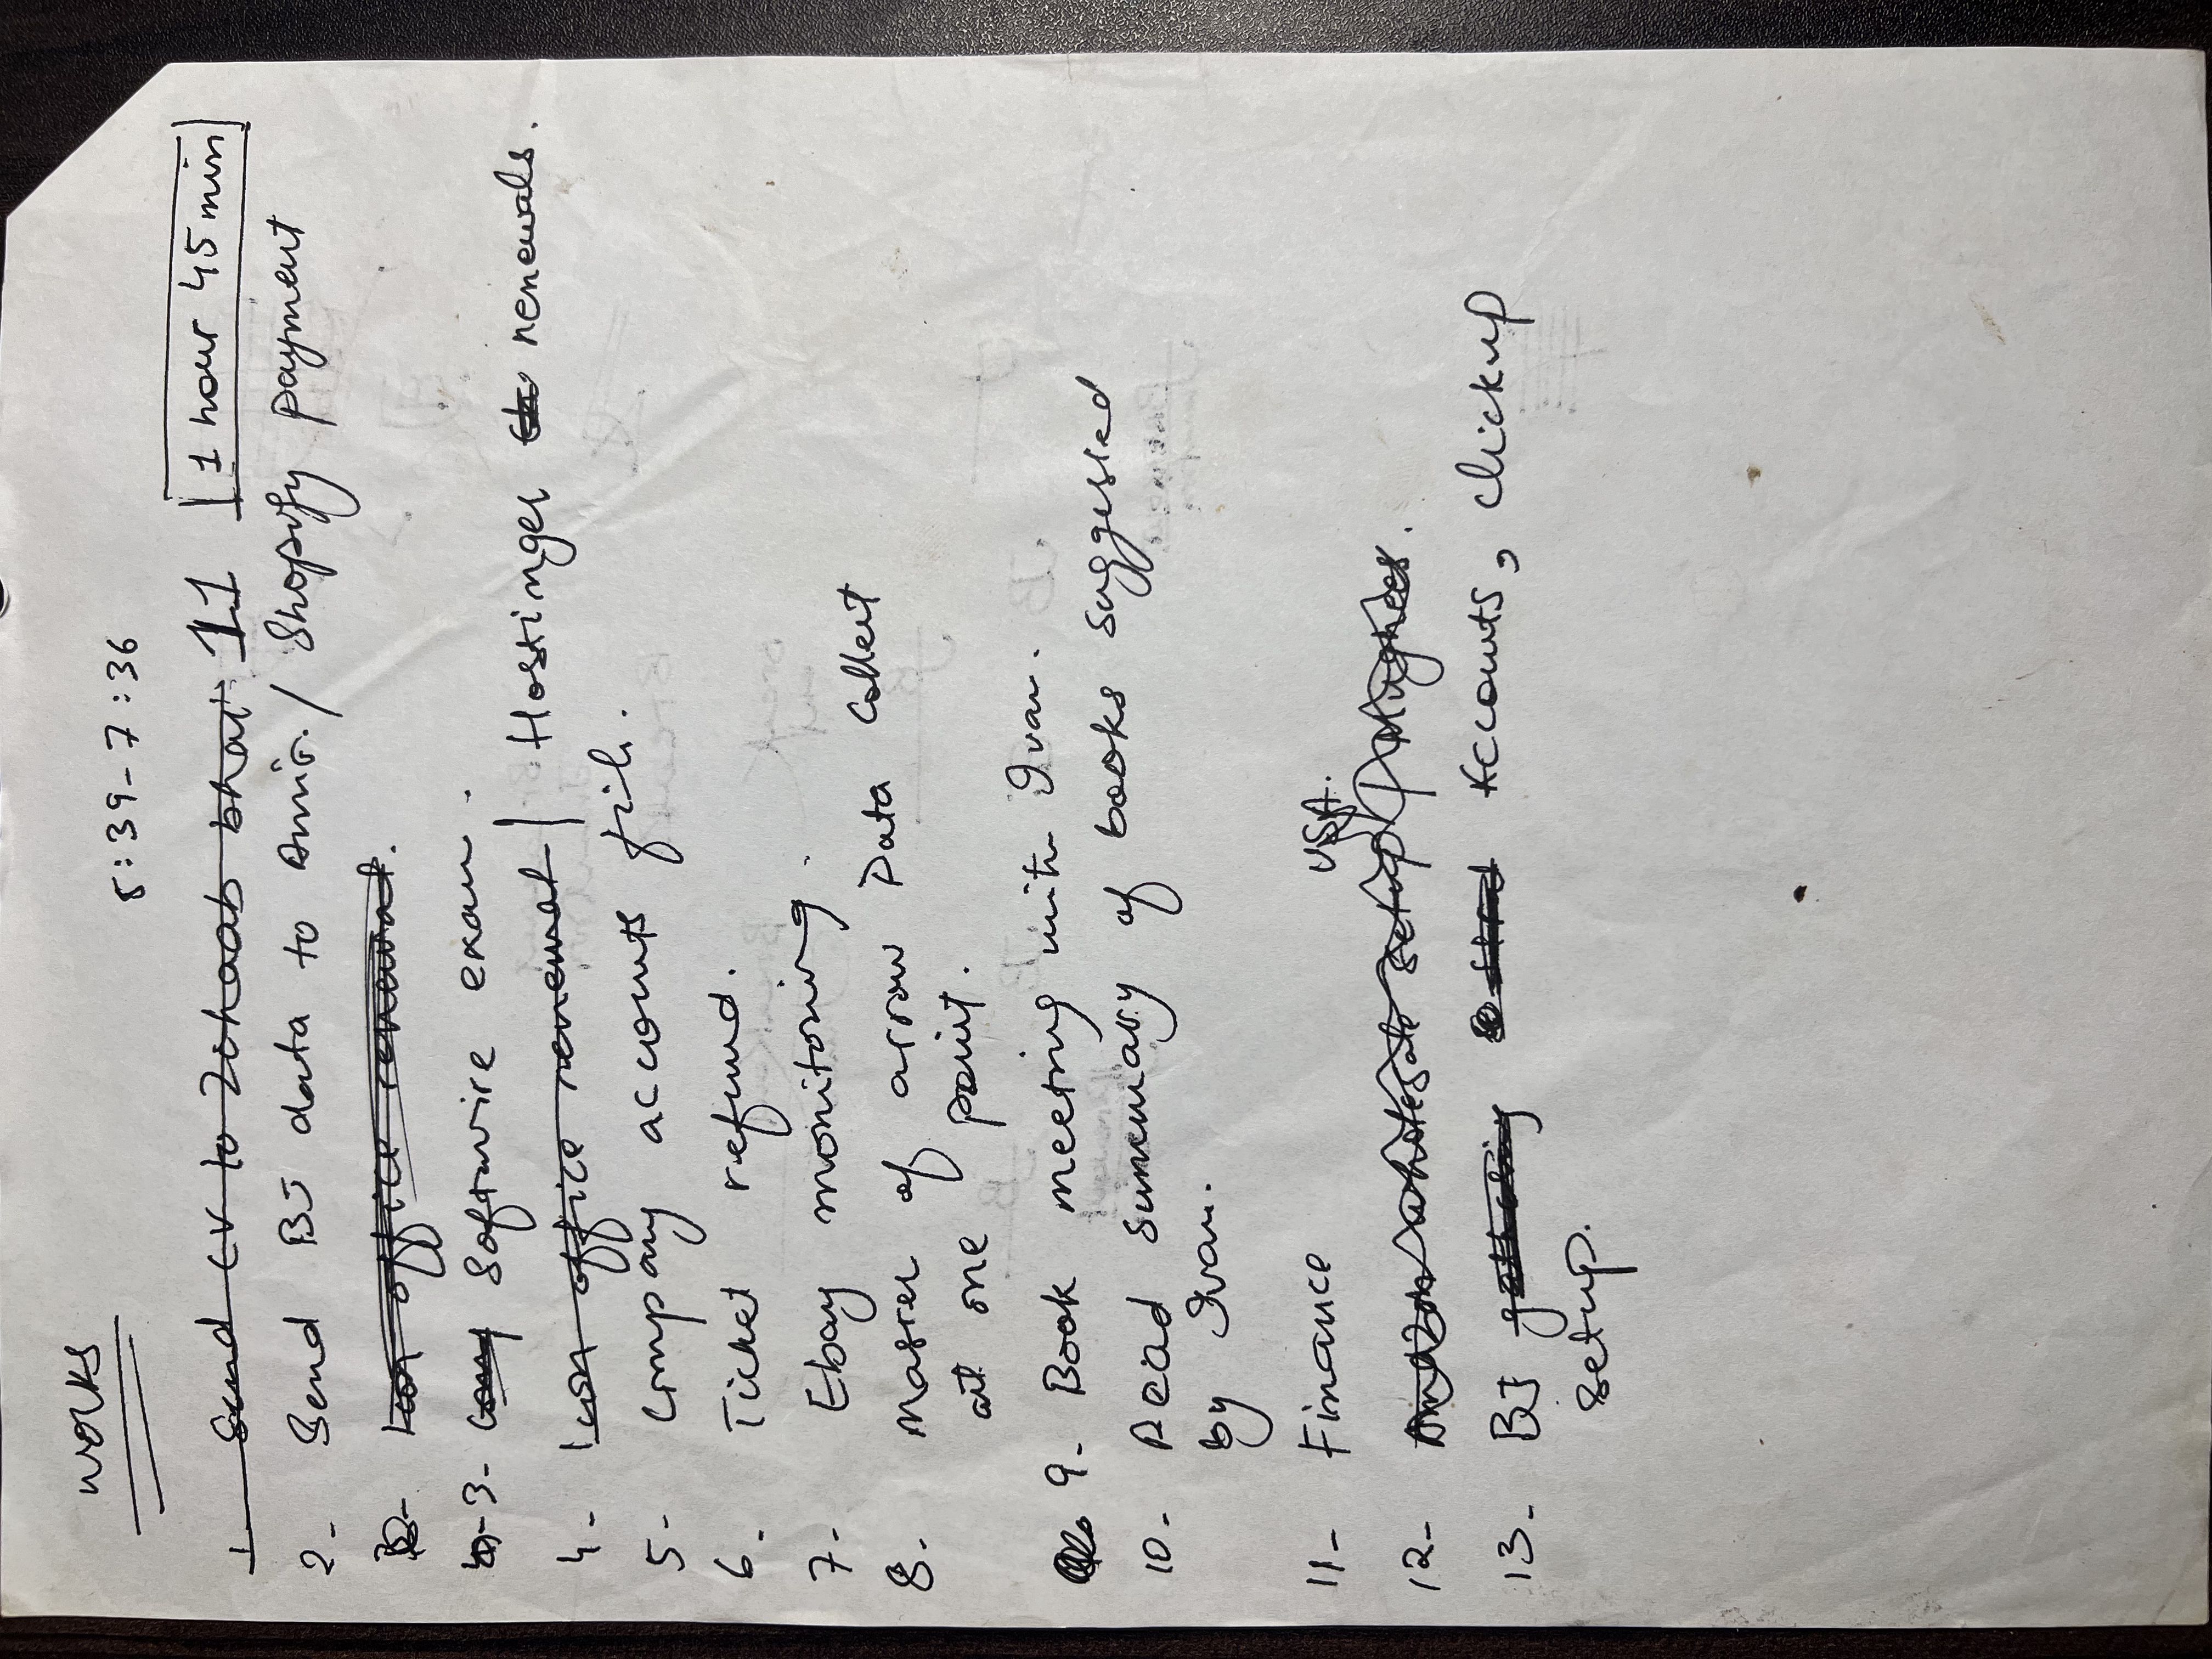 works
5:39-7:36
1- Send CV to Zohaab bhai. 11 1 hour 45 min
2- Send BJ data to Amir. / Shopify payment
office renewal.
3- Softwire exam.
4- office renewal | Hostinger renewals.
5- Company accounts file.
6- Ticket refund.
7- Ebay monitoring.
8- Master of arrow Data Collect
at one point.
9- Book meeting with Ivan.
10- Read summary of books suggested
by Ivan.
11- Finance USA.
12- Amazon setup
13- BJ Accounts, clickup
setup.